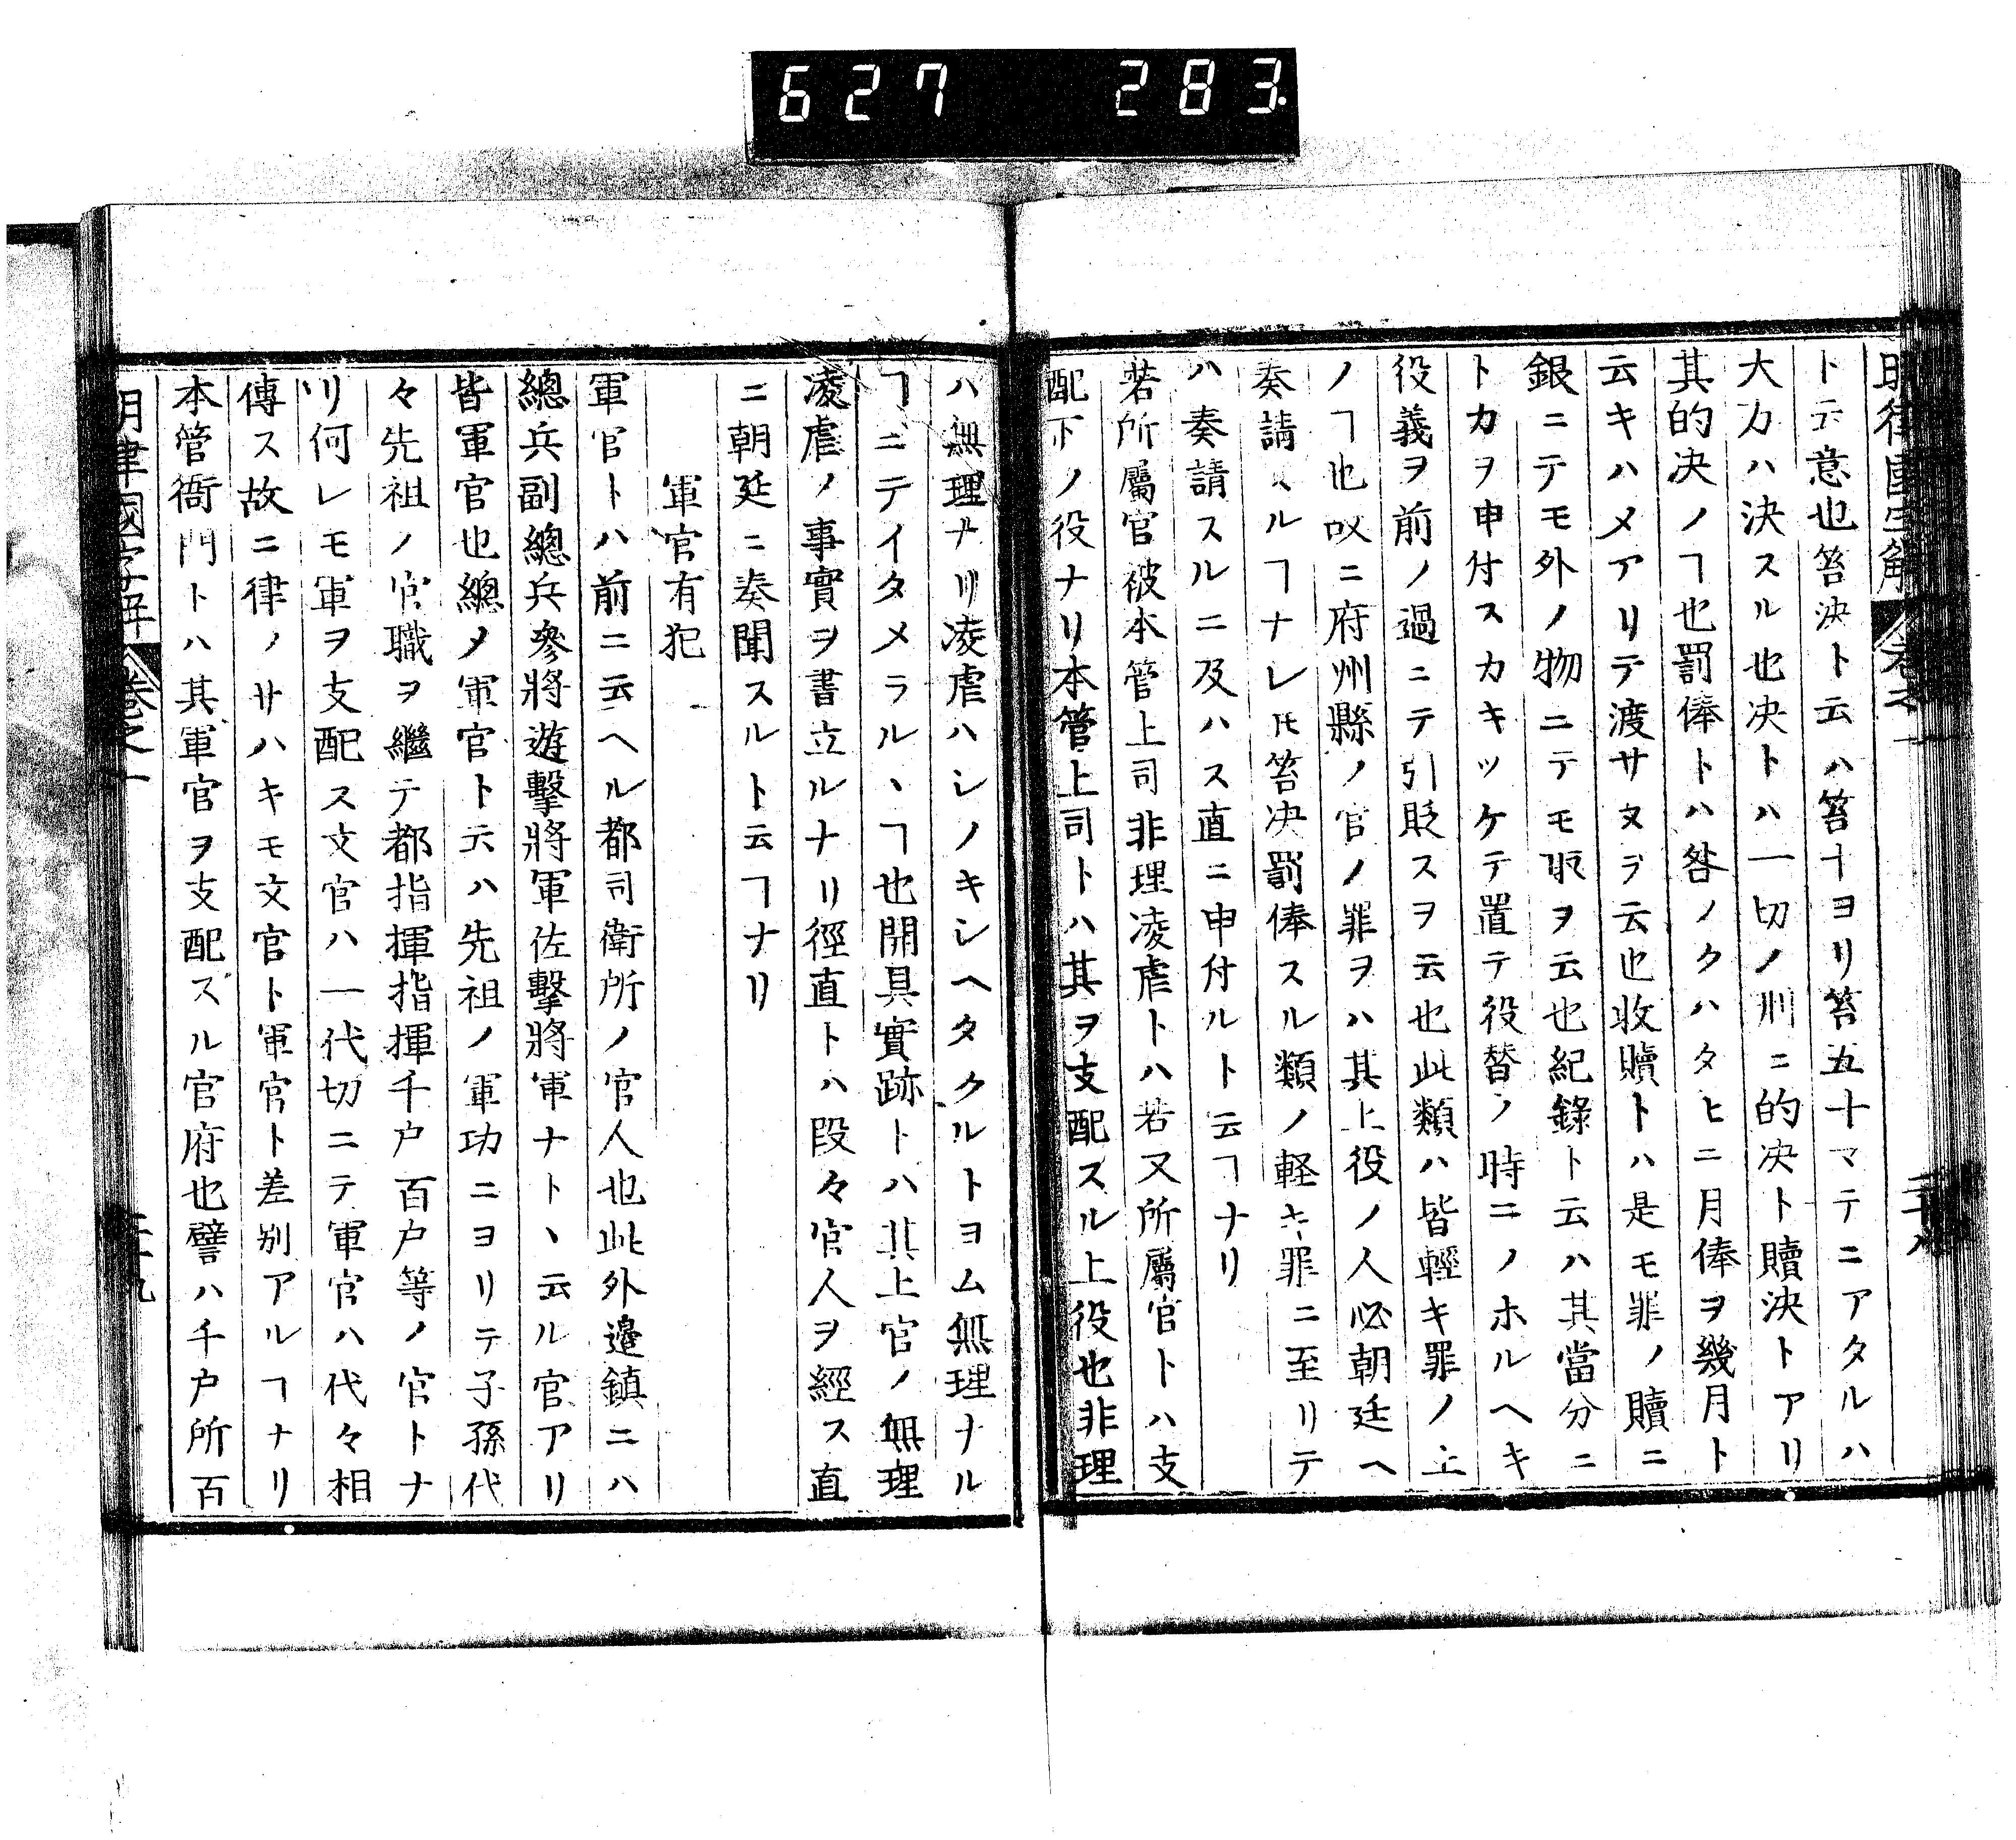 627 283
明律國字解 卷之一 二十八
ト云意也笞決ト云ハ笞十ヨリ笞五十マテニアタルハ
大カハ決スル也决トハ一切ノ刑ニ的决ト贖決トアリ
其的决ノヿ也罰俸トハ咎ノクハタヒニ月俸ヲ幾月ト
云キハメアリテ渡サヌヲ云也收贖トハ是モ罪ノ贖ニ
銀ニテモ外ノ物ニテモ取ヲ云也紀錄ト云ハ其當分ニ
トカヲ申付スカキツケテ置テ役替ノ時ニノホルヘキ
役義ヲ前ノ過ニテ引貶スヲ云也此類ハ皆輕キ罪ノ上
ノヿ也㕥ニ府州縣ノ官ノ罪ヲハ其上役ノ人必朝廷ヘ
奏請スルヿナレ𪜈笞决罰俸スル類ノ軽キ罪ニ至リテ
ハ奏請スルニ及ハス直ニ申付ルト云ヿナリ
若所屬官被本管上司非理凌虐トハ若又所屬官トハ支
配下ノ役ナリ本管上司トハ其ヲ支配スル上役也非理
ハ無理ナリ凌虐ハシノキシヘタクルトヨム無理ナル
ヿニテイタメラルヽヿ也開具實跡トハ其上官ノ無理
凌虐ノ事實ヲ書立ルナリ徑直トハ段々官人ヲ經ス直
ニ朝廷ニ奏聞スルト云ヿナリ
軍官有犯
軍官トハ前ニ云ヘル都司衛所ノ官人也此外邊鎮ニハ
總兵副總兵參將遊擊將軍佐擊將軍ナトヽ云ル官アリ
皆軍官也總メ軍官ト云ハ先祖ノ軍功ニヨリテ子孫代
々先祖ノ官職ヲ繼テ都指揮指揮千户百户等ノ官トナ
リ何レモ軍ヲ支配ス文官ハ一代切ニテ軍官ハ代々相
傳ス故ニ律ノサハキモ文官ト軍官ト差别アルヿナリ
本管衙門トハ其軍官ヲ支配スル官府也譬ハ千户所百
明律國字解 卷之一 二十九